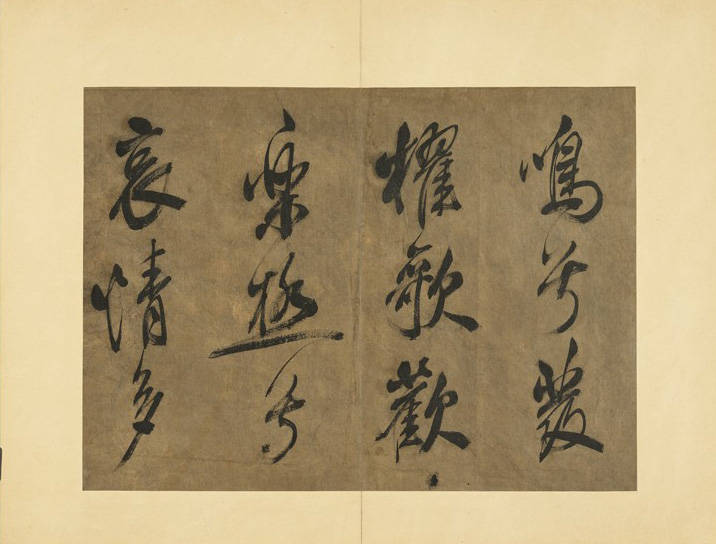 鳴兮發
櫂歌歡
樂極兮
哀情多